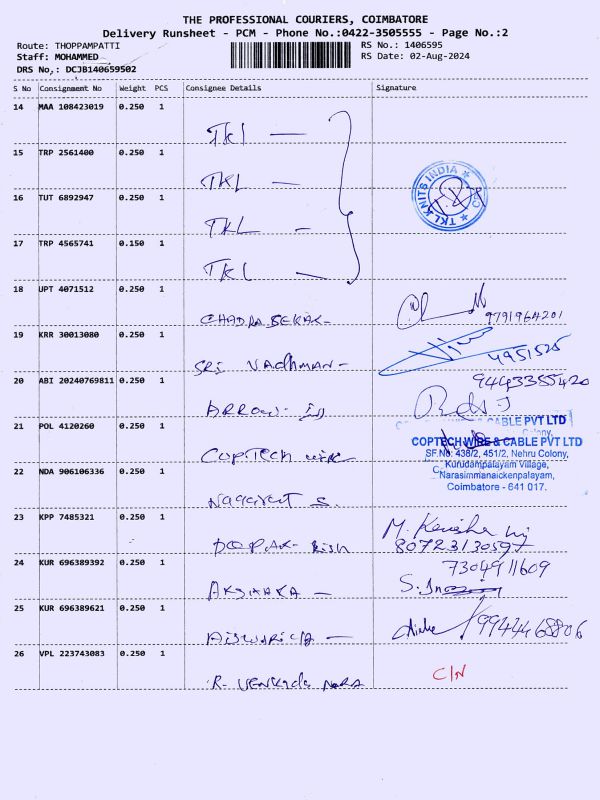 THE PROFESSIONAL COURIERS, COIMBATORE
Delivery Runsheet - PCM - Phone No.:0422-3505555 - Page No.:2
Route: THOPPAMPATTI RS No.: 1406595
Staff: MOHAMMED RS Date: 02-Aug-2024
DRS No,: DCJB140659502
S No Consignment No Weight PCS Consignee Details Signature
14 MAA 108423019 0.250 1
TKL —
15 TRP 2561400 0.250 1
TKL —
TKL KNITS INDIA
16 TUT 6892947 0.250 1
TKL —
17 TRP 4565741 0.150 1
TKL —
18 UPT 4071512 0.250 1
CHADRA SEKAR- 9791964201
19 KRR 30013080 0.250 1
SRI VADHMAN- 4951525
20 ABI 20240769811 0.250 1 9443355420
ARROW-
21 POL 4120260 0.250 1
& CABLE PVT LTD
Colony,
COPTECH WIRE & CABLE PVT LTD
SF.No: 438/2, 451/2, Nehru Colony,
COPTECH WIRE
Kurudampalayam Village,
22 NDA 906106336 0.250 1
Narasimmanaickenpalayam,
Coimbatore - 641 017.
NAGARAT S.
23 KPP 7485321 0.250 1
M.
DOPAK- 80723130597
24 KUR 696389392 0.250 1 7304911609
AKSHAKA — S.
25 KUR 696389621 0.250 1
AISWARICA — 9944468806
26 VPL 223743083 0.250 1
C/N
R- VENKADA NARA